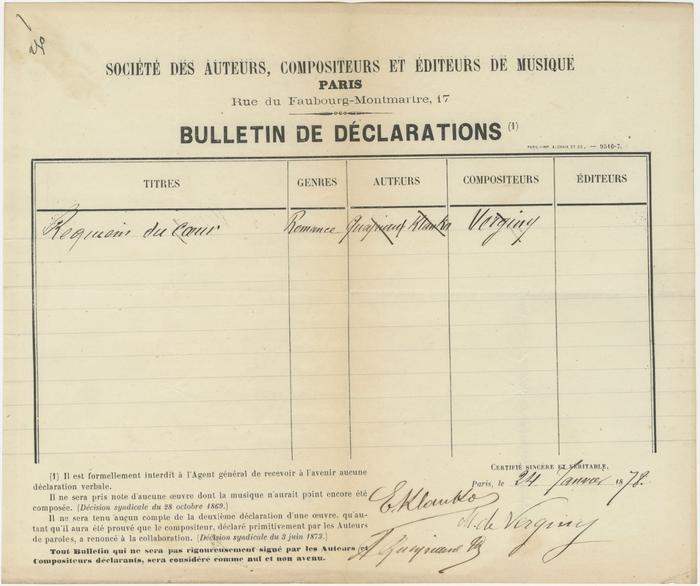 SOCIÉTÉ DES AUTEURS, COMPOSITEURS ET ÉDITEURS DE MUSIQUE
PARIS
Rue du Faubourg-Montmartre, 17
BULLETIN DE DÉCLARATIONS (1)
PARIS.—IMP. A. CHAIX ET Cie. — 9546-7.
TITRES GENRES AUTEURS COMPOSITEURS ÉDITEURS
Requiem du Cœur Romance Klanko Verginy
(1) Il est formellement interdit à l'Agent général de recevoir à l'avenir aucune
déclaration verbale.
Il ne sera pris note d'aucune œuvre dont la musique n'aurait point encore été
composée. (Décision syndicale du 28 octobre 1869.)
Il ne sera tenu aucun compte de la deuxième déclaration d'une œuvre, qu'au-
tant qu'il aura été prouvé que le compositeur, déclaré primitivement par les Auteurs
de paroles, a renoncé à la collaboration. (Décision syndicale du 3 juin 1873.)
Tout Bulletin qui ne sera pas rigoureusement signé par les Auteurs et
Compositeurs déclarants, sera considéré comme nul et non avenu.
CERTIFIÉ SINCÈRE ET VÉRITABLE,
Paris, le 24 Janvier 1878.
E Klanko
de Verginy